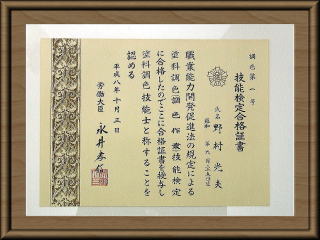 調色第一号
技能検定合格証書
氏名 野村光夫
昭和
職業能力開発促進法の規定による
塗料調色調色作業技能検定
に合格したのでここに合格証書を授与し
塗料調色技能士と称することを
認める
平成八年十月三日
労働大臣
永井孝信